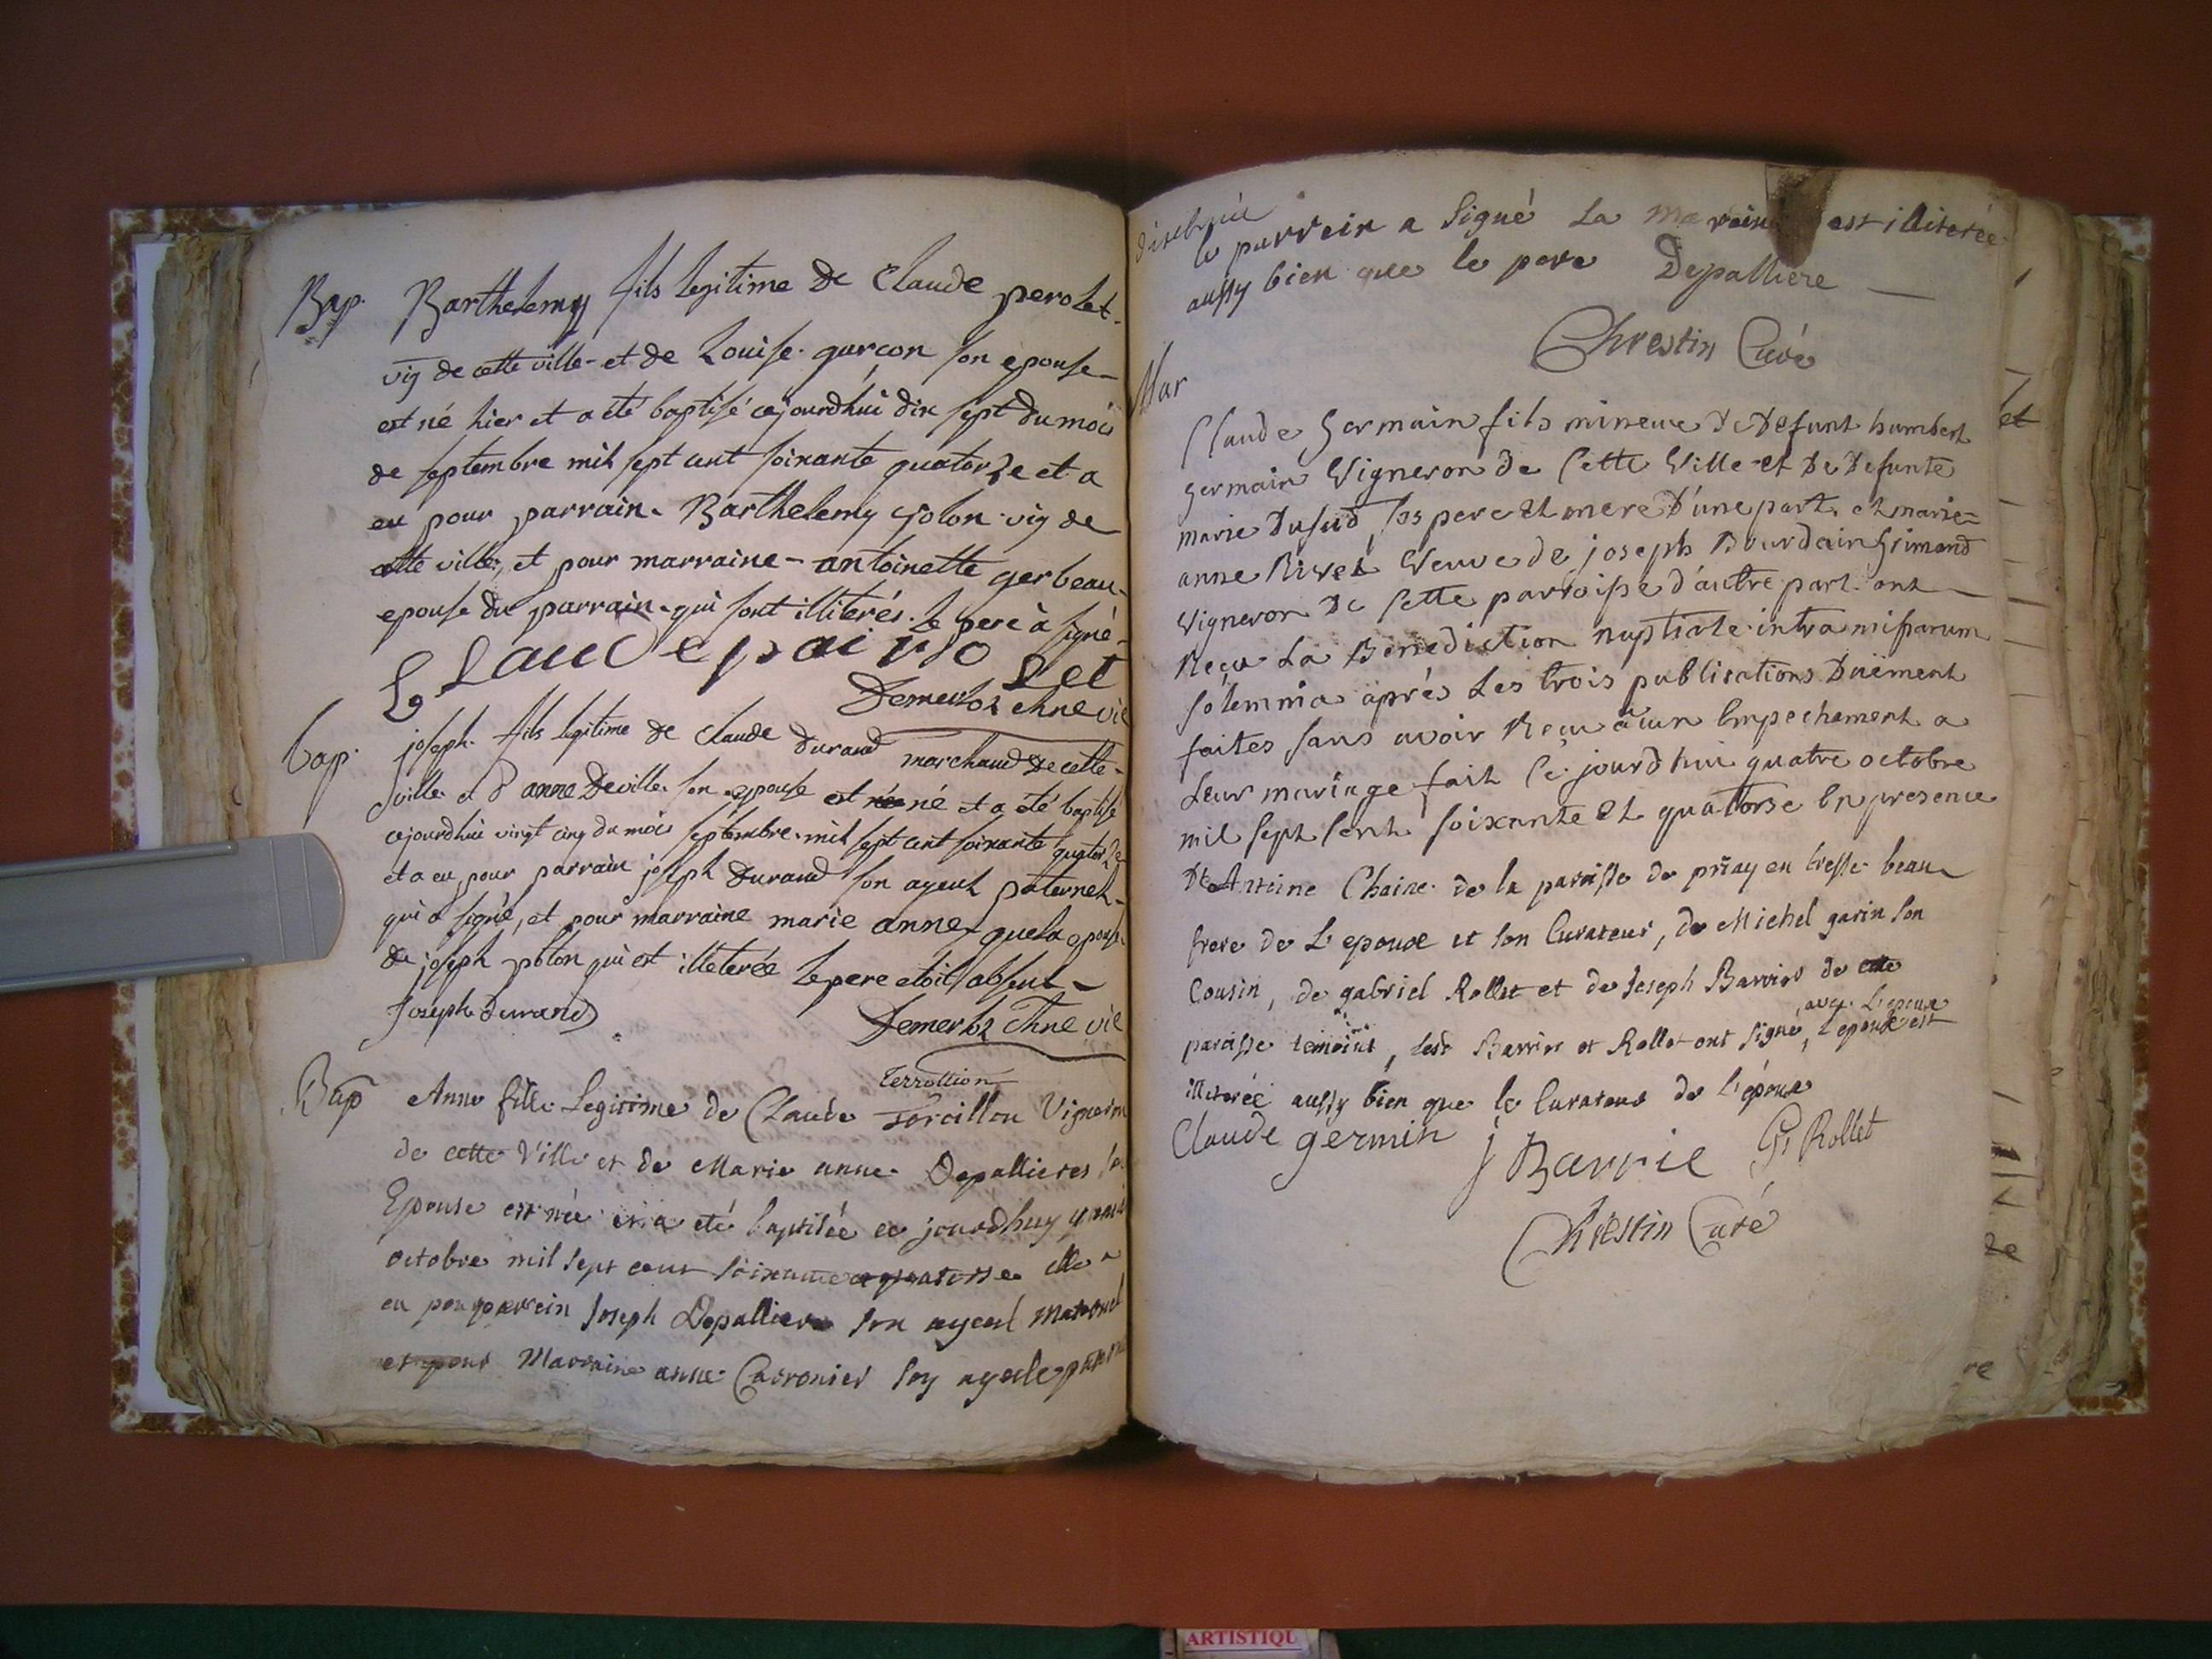 Bap. Barthelemy fils legitime de Claude perolet.
vig de cette ville et de Louise garçon son epouse
est né hier et a été baptisé cejourdhui dix sept du mois
de septembre mil sept cent soixante quatorze et a
eu pour parrain Barthelemy polon vig de
cette ville, et pour marraine antoinette gerbeau
epouse du parrain qui sont illiterés. le pere à signé
Demerloz chne vic
bap. joseph fils legitime de claude durand marchand de cette
ville et d anne deville son epouse est né et a été baptisé
cejourdhui vingt cinq du mois septembre mil sept cent soixante quatorze
et a eu pour parrain joseph durand son ayeul paternel
qui a signé, et pour marraine marie anne epouse
de joseph polon qui est illeterée le pere etoit absent
Joseph durand Demerloz Chne vic
Bap Anne fille Legitime de Claude Vigneron
de cette Ville et de Marie anne Depallieres sa
Epouse est née et a eté baptisée ce jourdhuy
octobre mil sept cent soixante et quatorse elle a
eu pour parrein Joseph Depalliere son ayeul maternel
et pour Marraine anne son ayeule paternel
le parrein a signé La Maraine est illiterée
aussy bien que le pere Depalliere
Chrestin Curé
Mar
Claude Germain fils mineur de defunt humbert
germain Vigneron de Cette Ville et De Defunte
marie Dufud, ses pere et mere D'une part, et marie
anne Rivet Veuve de joseph Bourdain Grimand
Vigneron De Cette parroisse d'autre part ont
Reçu La Benediction nuptiale intra missarum
solemnia après Les trois publications Duëment
faites sans avoir Reçu aucun Empechement a
Leur mariage fait Ce jourd'hui quatre octobre
mil sept cent soixante Et quatorse En presence
De Antoine Chaine de la paroisse de priay en bresse beau
frere de L'epoux et son Curateur, de Michel garin son
Cousin, de gabriel Rollet et de Joseph Barrier de cette
avec L'epoux
paroisse temoins, lesd Barrier et Rollet ont signé, L'epouse est
illiterée aussy bien que le Curateur de L'époux
Claude germin j Barrie G. Rollet
Chrestin Curé
et
re
ARTISTIQU